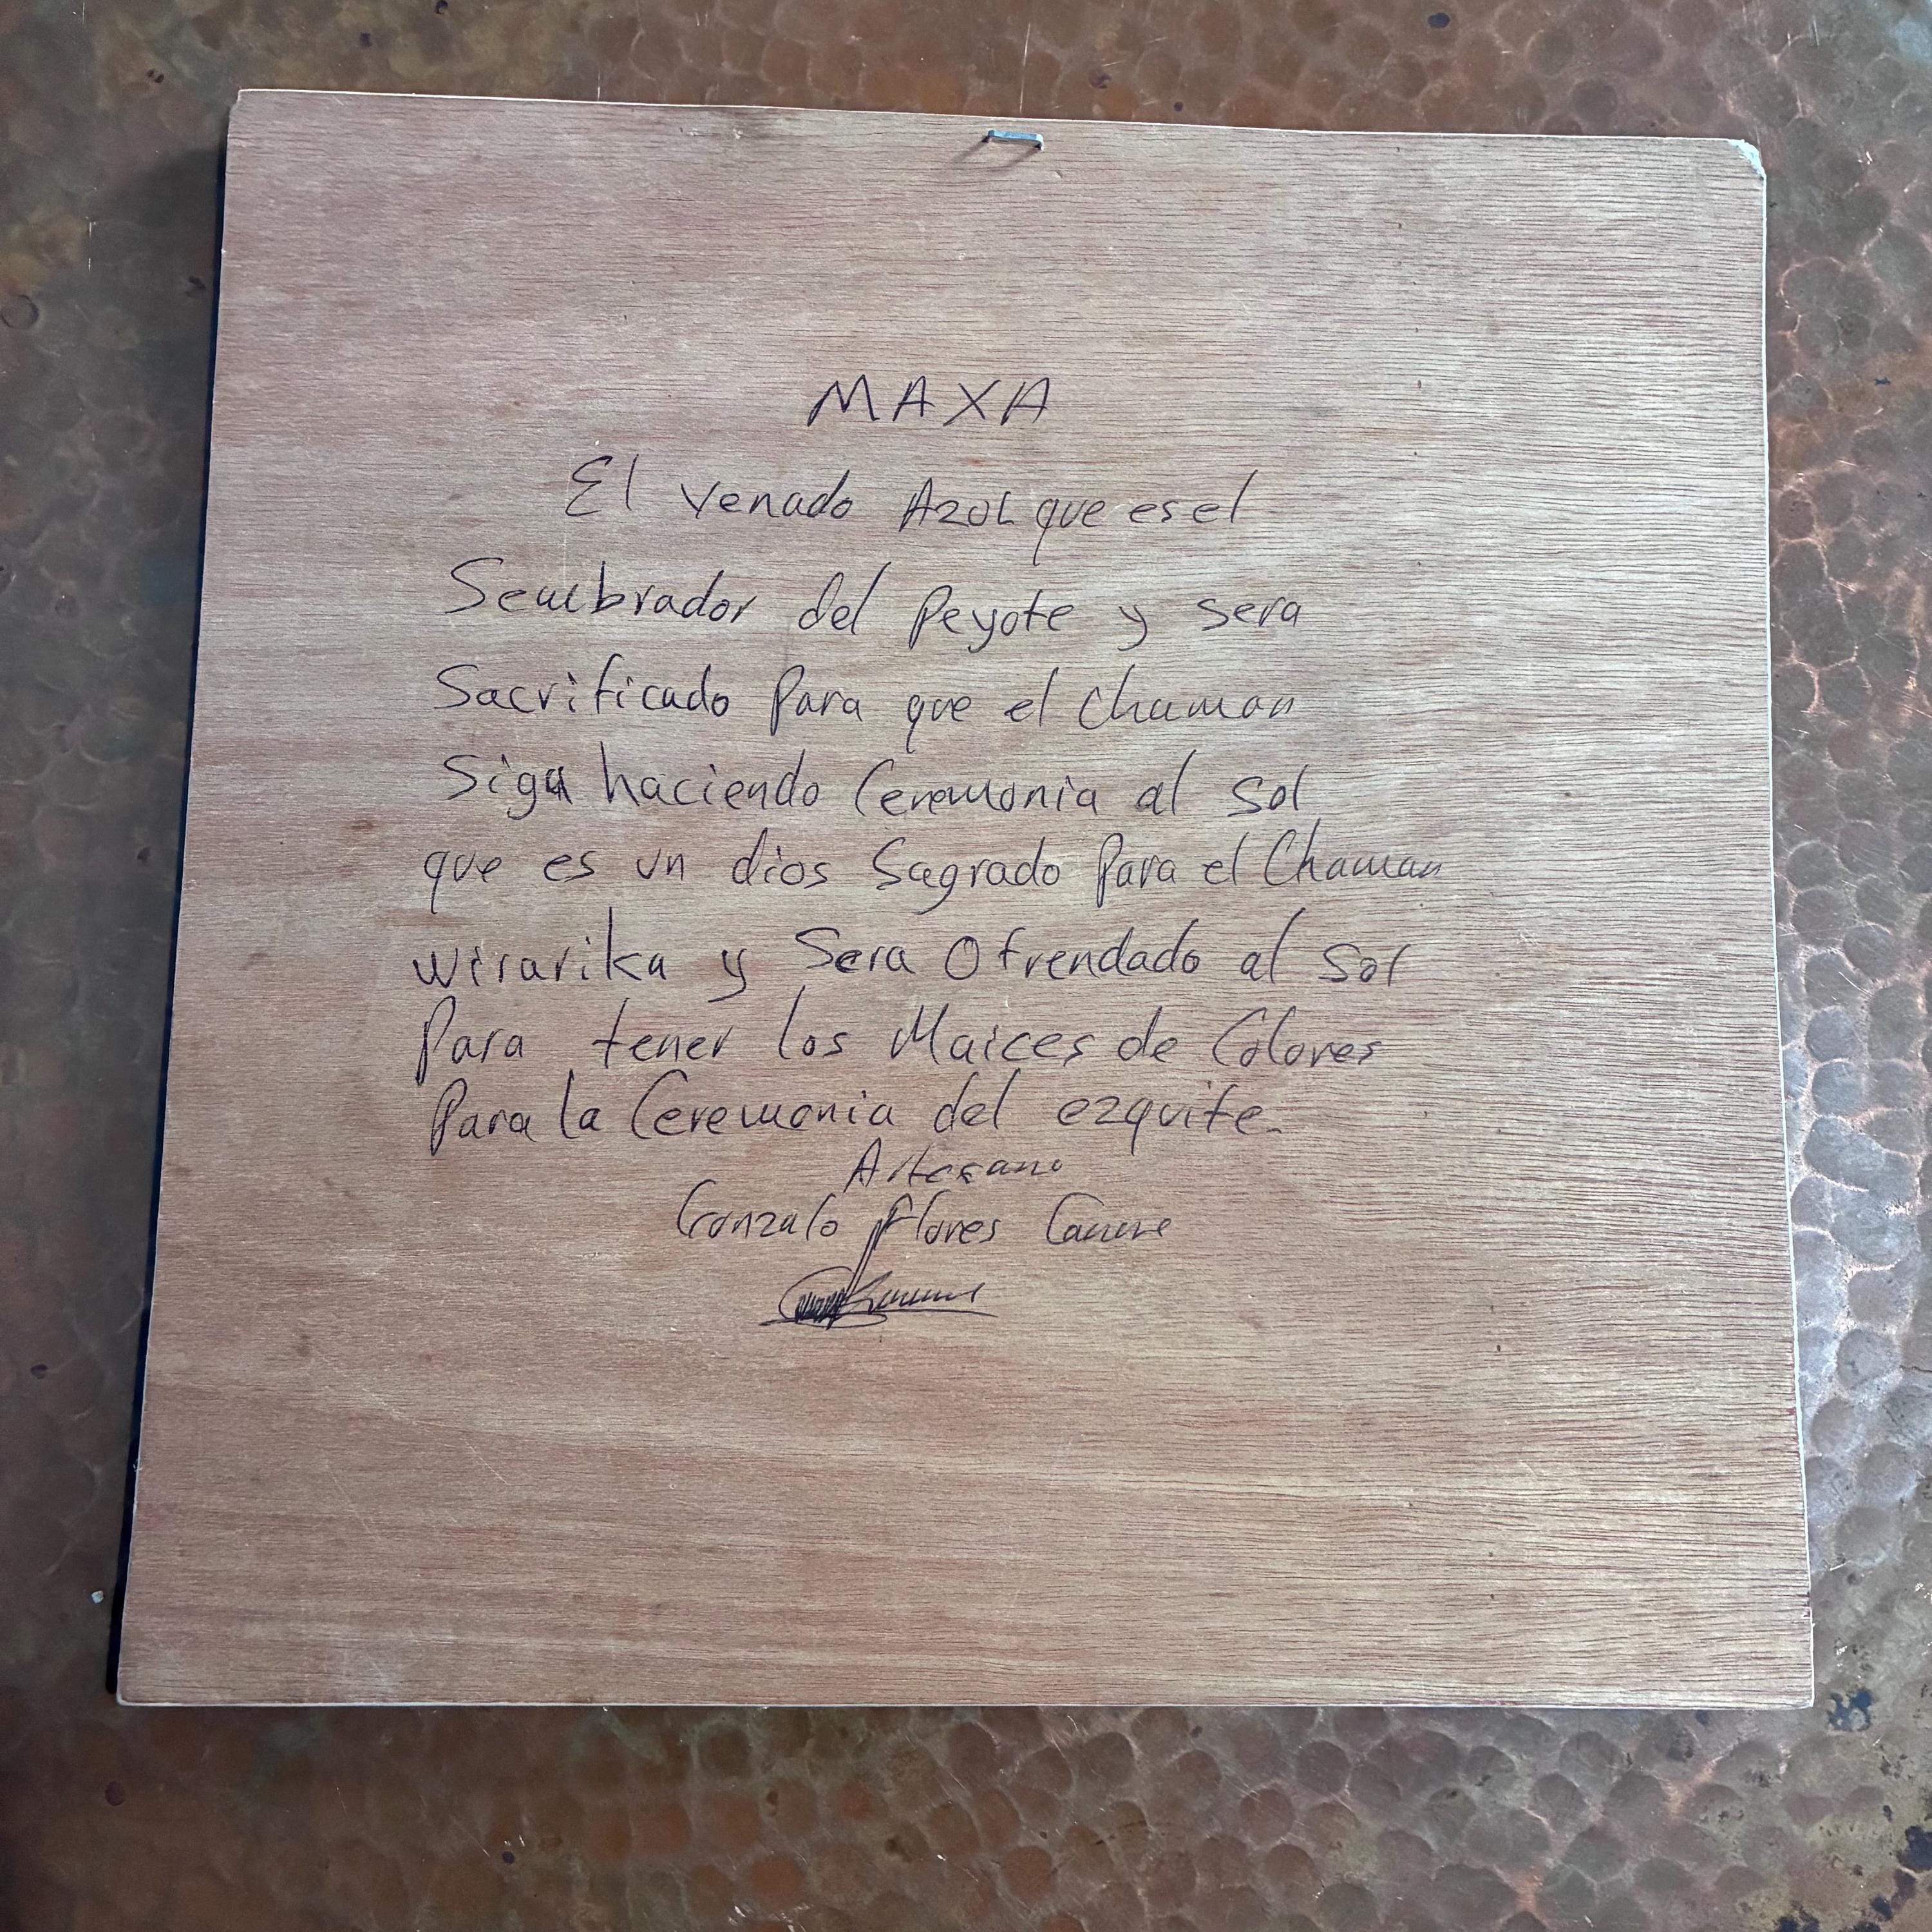 MAXA
El venado Azul que es el
Sembrador del Peyote y sera
Sacrificado Para que el chaman
Siga haciendo Ceremonia al sol
que es un dios Sagrado Para el Chaman
wirarika y Sera Ofrendado al sol
Para tener los Maices de Colores
Para la Ceremonia del ezquite.
Artesano
Gonzalo Flores